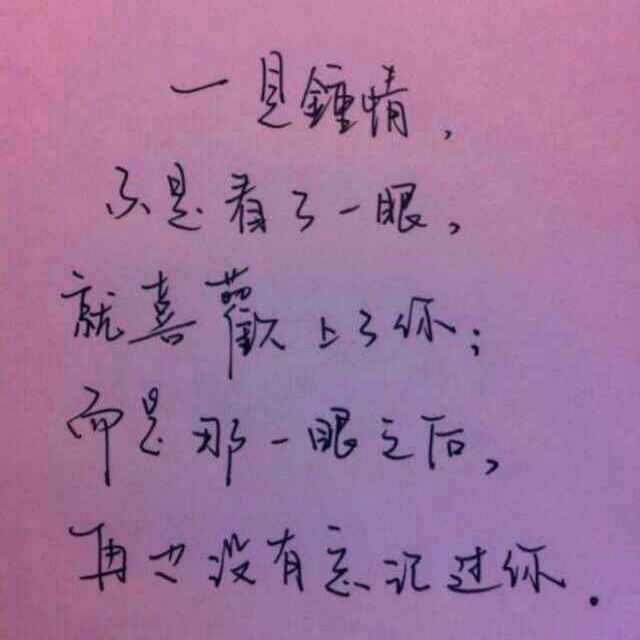 一見鍾情，
不是看了一眼，
就喜歡上了你；
而是那一眼之后，
再也没有忘记过你．